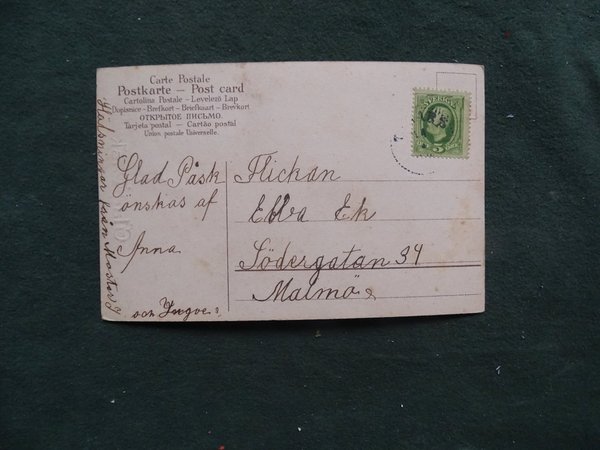 Carte Postale
Postkarte — Post card
Cartolina Postale - Levelező Lap
Dopisnice - Brefkort - Briefkaart - Brevkort
ОТКРЫТОЕ ПИСЬМО.
Tarjeta postal — Cartão postal
Union postale Universelle.
Glad Påsk
önskas af
Anna
och Yngve
Hälsningar från Moster
Flickan
Ellva Ek
Södergatan 34
Malmö
SVERIGE
5 ÖRE